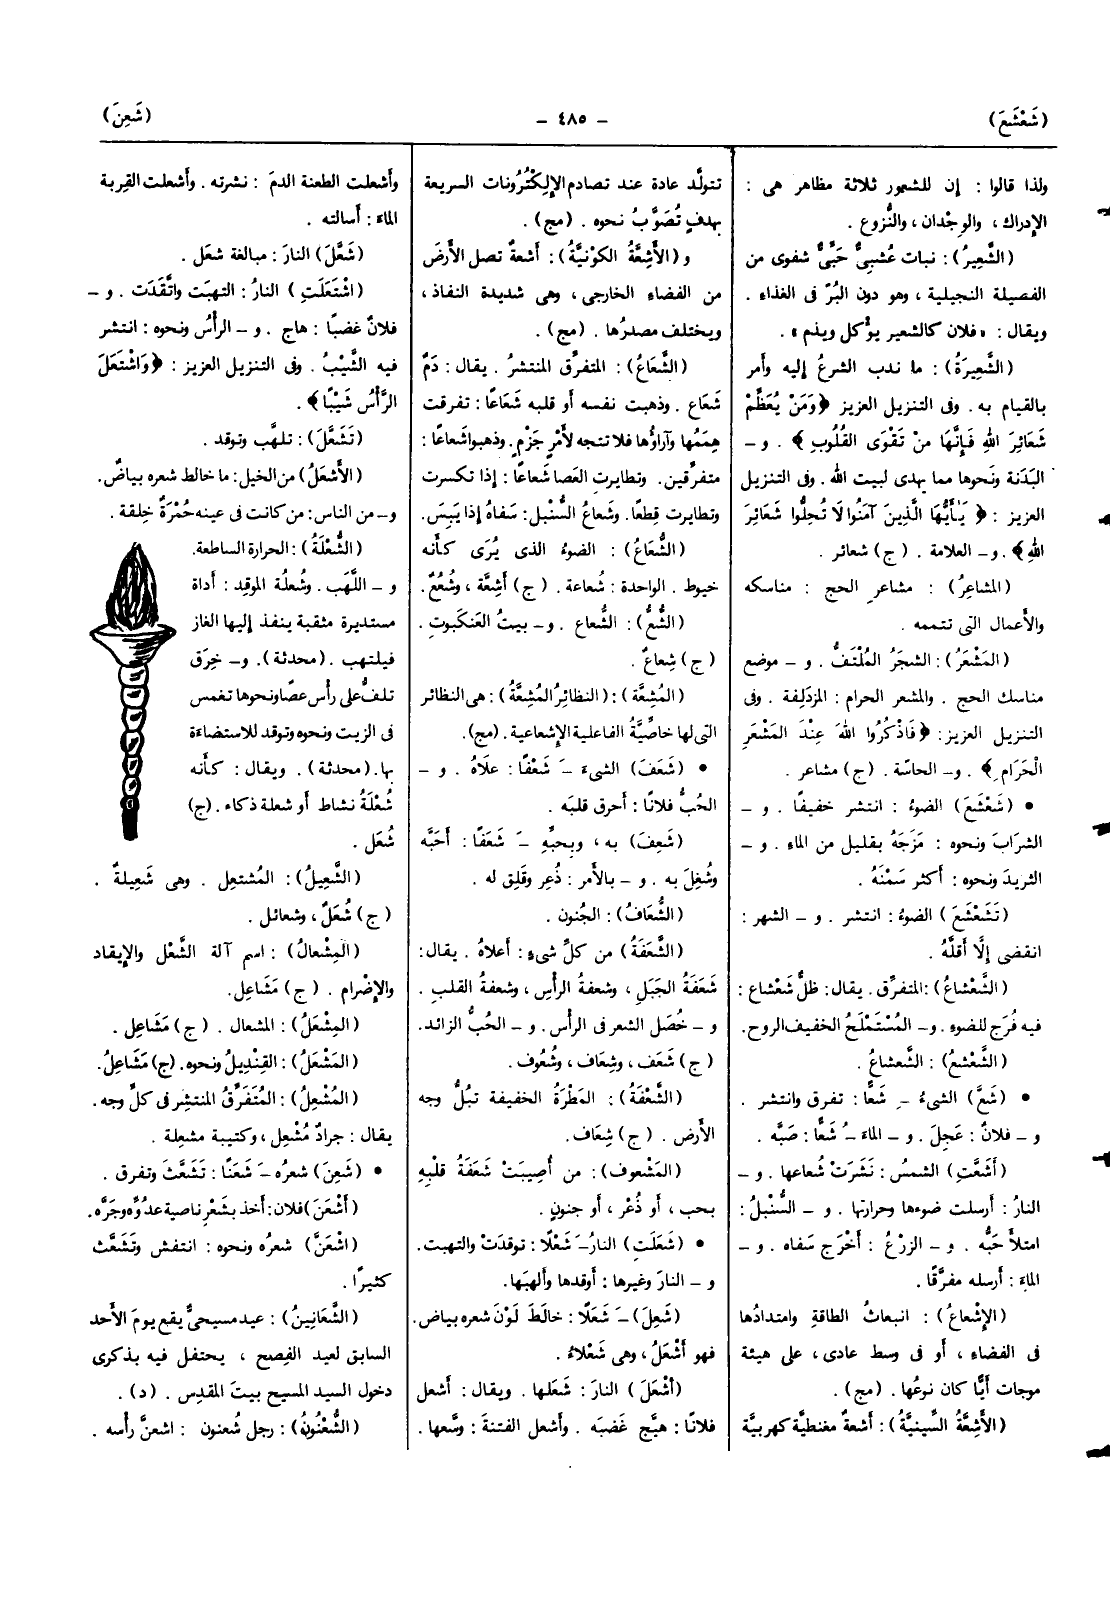 (شَعْشَعَ)
– ٤٨٥ –
(شَعِنَ)
ولذا قالوا : إن للشعور ثلاثة مظاهر هى :
الإدراك ، والوِجْدان ، والنُّزوع .
(الشَّعِيرُ) : نبات عُشبيٌّ حَبِّيٌّ شفوى من
الفصيلة النجيلية ، وهو دون البُرّ فى الغذاء .
ويقال : « فلان كالشعير يؤكل ويذم » .
(الشَّعِيرَةُ) : ما ندب الشرعُ إليه وأمر
بالقيام به . وفى التنزيل العزيز ﴿ وَمَنْ يُعَظِّمْ
شَعَائِرَ اللهِ فَإِنَّهَا مِنْ تَقْوَى القُلُوبِ ﴾ . و –
البَدَنة ونَحوها مما يهدى لبيت الله . وفى التنزيل
العزيز : ﴿ يَأَيُّهَا الَّذِينَ آمَنُوا لَا تُحِلُّوا شَعَائِرَ
اللهِ ﴾ . و – العلامة . (ج) شعائر .
(المشاعِرُ) : مشاعر الحج : مناسكه
والأعمال التى تتممه .
(المَشْعَرُ) : الشجَرُ المُلْتَفُّ . و – موضع
مناسك الحج . والمشعر الحرام : المزدَلِفة . وفى
التنزيل العزيز : ﴿ فَاذْكُرُوا اللهَ عِنْدَ المَشْعَرِ
الْحَرَامِ ﴾ . و– الحاسّة . (ج) مشاعر .
• (شَعْشَعَ) الضوءُ : انتشر خفيفًا . و –
الشرَابَ ونحوه : مَزَجَهُ بقليل من الماء . و –
الثريدَ ونحوه : أكثر سَمْنَهُ .
(تَشَعْشَعَ) الضوءُ : انتشر . و – الشهر :
انقضى إلَّا أقلَّهُ .
(الشَّعْشاعُ) : المتفرِّق . يقال : ظلٌّ شَعْشاع :
فيه فُرَج للضوء . و– المُسْتَمْلَحُ الخفيف الروح .
(الشَّعْشعُ) : الشَّعشاعُ .
• (شَعَّ) الشىءُ ـِ شَعًّا : تفرق وانتشر .
و – فلانٌ : عَجِلَ . و – الماءَ ـُ شَعًّا : صَبَّه .
(أَشَعَّتِ) الشمسُ : نَشَرَتْ شُعاعها . و –
النارُ : أرسلت ضوءها وحرارتها . و – السُّنْبلُ :
امتلأ حَبُّه . و – الزرْعُ : أخْرَج سَفاه . و –
الماءَ : أرسله مفرَّقًا .
(الإشْعاعُ) : انبعاثُ الطاقةِ وامتدادُها
فى الفضاء ، أو فى وسط عادى ، على هيئة
موجات أيًّا كان نوعُها . (مج) .
(الأَشِعَّةُ السِّينيَّةُ) : أشعةٌ مغنطيَّة كهربيَّة
تتولَّد عادة عند تصادم الإلِكْتُرُونات السريعة
بهدفٍ تُصَوَّبُ نحوه . (مج) .
و (الأشِعَّةُ الكَوْنيَّةُ) : أشعةٌ تصل الأرضَ
من الفضاء الخارجى ، وهى شديدة النفاذ ،
ويختلف مصدرُها . (مج) .
(الشَّعَاعُ) : المتفرِّق المنتشرُ . يقال : دَمٌ
شَعَاع . وذهبت نفسه أو قلبه شَعَاعًا : تفرقت
هِمَمُها وآراؤها فلا تتجه لأمْرٍ جَزْمٍ . وذهبوا شَعاعًا :
متفرِّقين . وتطايرت العَصا شَعاعًا : إذا تكسرت
وتطايرت قِطعًا . وشَعاعُ السُّنْبل : سَفاهُ إذا يَبِسَ .
(الشُّعَاعُ) : الضوءُ الذى يُرَى كأنه
خيوط . الواحدة : شُعاعة . (ج) أَشِعَّة ، وشُعُعٌ .
(الشُّعُّ) : الشُّعاع . و– بيتُ العَنكَبوتِ .
(ج) شِعاعٌ .
(المُشِعَّة) : (النظائِرُ المُشِعَّةُ) : هى النظائر
التى لها خاصِّيَّةُ الفاعلية الإشعاعية . (مج) .
• (شَعَفَ) الشىءَ ـَ شَعْفًا : علَاهُ . و –
الحُبُّ فلانًا : أحرق قلبَه .
(شَعِفَ) به ، وبِحبِّهِ ـَ شَعَفًا : أحَبَّه
وشُغِلَ به . و – بالأمر : ذُعِر وقَلِق له .
(الشُّعَافُ) : الجُنون .
(الشَّعَفَةُ) من كلِّ شىءٍ : أعلاهُ . يقال :
شَعَفَةُ الجَبَلِ ، وشعفةُ الرأسِ ، وشعفةُ القلبِ .
و – خُصَل الشعر فى الرأس . و – الحُبُّ الزائد .
(ج) شَعَف ، وشِعَاف ، وشُعُوف .
(الشَّعْفَةُ) : المَطْرَةُ الخفيفة تَبُلُّ وجه
الأرض . (ج) شِعَاف .
(المَشْعوف) : من أُصِيبَتْ شَعَفَةُ قلبِهِ
بحب ، أو ذُعْر ، أو جنونٍ .
• (شَعَلَتِ) النارُ ـَ شَعْلًا : توقدَتْ والتهبت .
و – النارَ وغيرها : أوقدها وألهبَها .
(شَعِلَ) ـَ شَعَلًا : خالطَ لَوْنَ شعره بياض .
فهو أشْعَلُ ، وهى شَعْلاءُ .
(أشْعَلَ) النارَ : شَعَلها . ويقال : أشعل
فلانًا : هيَّج غَضبَه . وأشعل الفتنةَ : وسَّعها .
وأشعلت الطعنة الدمَ : نشرته . وأشعلت القِربة
الماءَ : أسالته .
(شَعَّلَ) النارَ : مبالغة شعَل .
(اشْتَعَلَتِ) النارُ : التهبَت واتَّقَدَت . و –
فلانٌ غضبًا : هاج . و – الرأسُ ونحوه : انتشر
فيه الشَّيْبُ . وفى التنزيل العزيز : ﴿ وَاشْتَعَلَ
الرَّأسُ شَيْبًا ﴾ .
(تَشَعَّلَ) : تلهَّب وتوقد .
(الأشعَلُ) من الخيل : ما خالط شعره بياضٌ .
و– من الناس : من كانت فى عينه حُمْرَةٌ خِلقة .
(الشُّعْلَةُ) : الحرارة الساطعة .
و – اللَّهَب . وشُعلةُ الموقِد : أداة
مستديرة مثقبة ينفذ إليها الغاز
فيلتهب . (محدثة) . و– خِرَق
تلفُّ على رأس عصًا ونحوها تغمس
فى الزيت ونحوه وتوقد للاستضاءة
بها . (محدثة) . ويقال : كأنه
شُعْلَةُ نشاط أو شعلة ذكاء . (ج)
شُعَل .
(الشَّعِيلُ) : المُشتعِل . وهى شَعِيلةٌ .
(ج) شُعَلٌ ، وشعائل .
(المِشْعالُ) : اسم آلة الشَّعْل والإيقاد
والإضْرام . (ج) مَشَاعِل .
(المِشْعَلُ) : المشعال . (ج) مَشَاعِل .
(المَشْعَلُ) : القِنْدِيلُ ونحوه . (ج) مَشَاعِلُ .
(المُشْعِلُ) : المُتَفَرِّقُ المنتشر فى كلِّ وجه .
يقال : جرادٌ مُشْعِل ، وكتيبة مشعِلة .
• (شَعِنَ) شعرُه ـَ شَعَنًا : تَشَعَّثَ وتفرق .
(أشْعَنَ) فلان : أخذ بشَعْرِ ناصية عدوِّه وجَرَّه .
(اشْعَنَّ) شعرُه ونحوه : انتفش وتَشَعَّث
كثيرًا .
(الشَّعَانِينُ) : عيد مسيحىٌّ يقع يومَ الأحد
السابق لعيد الفِصح ، يحتفل فيه بذكرى
دخول السيد المسيح بيتَ المقدِس . (د) .
(الشُّعْنُونُ) : رجل شُعنون : اشعنَّ رأسه .